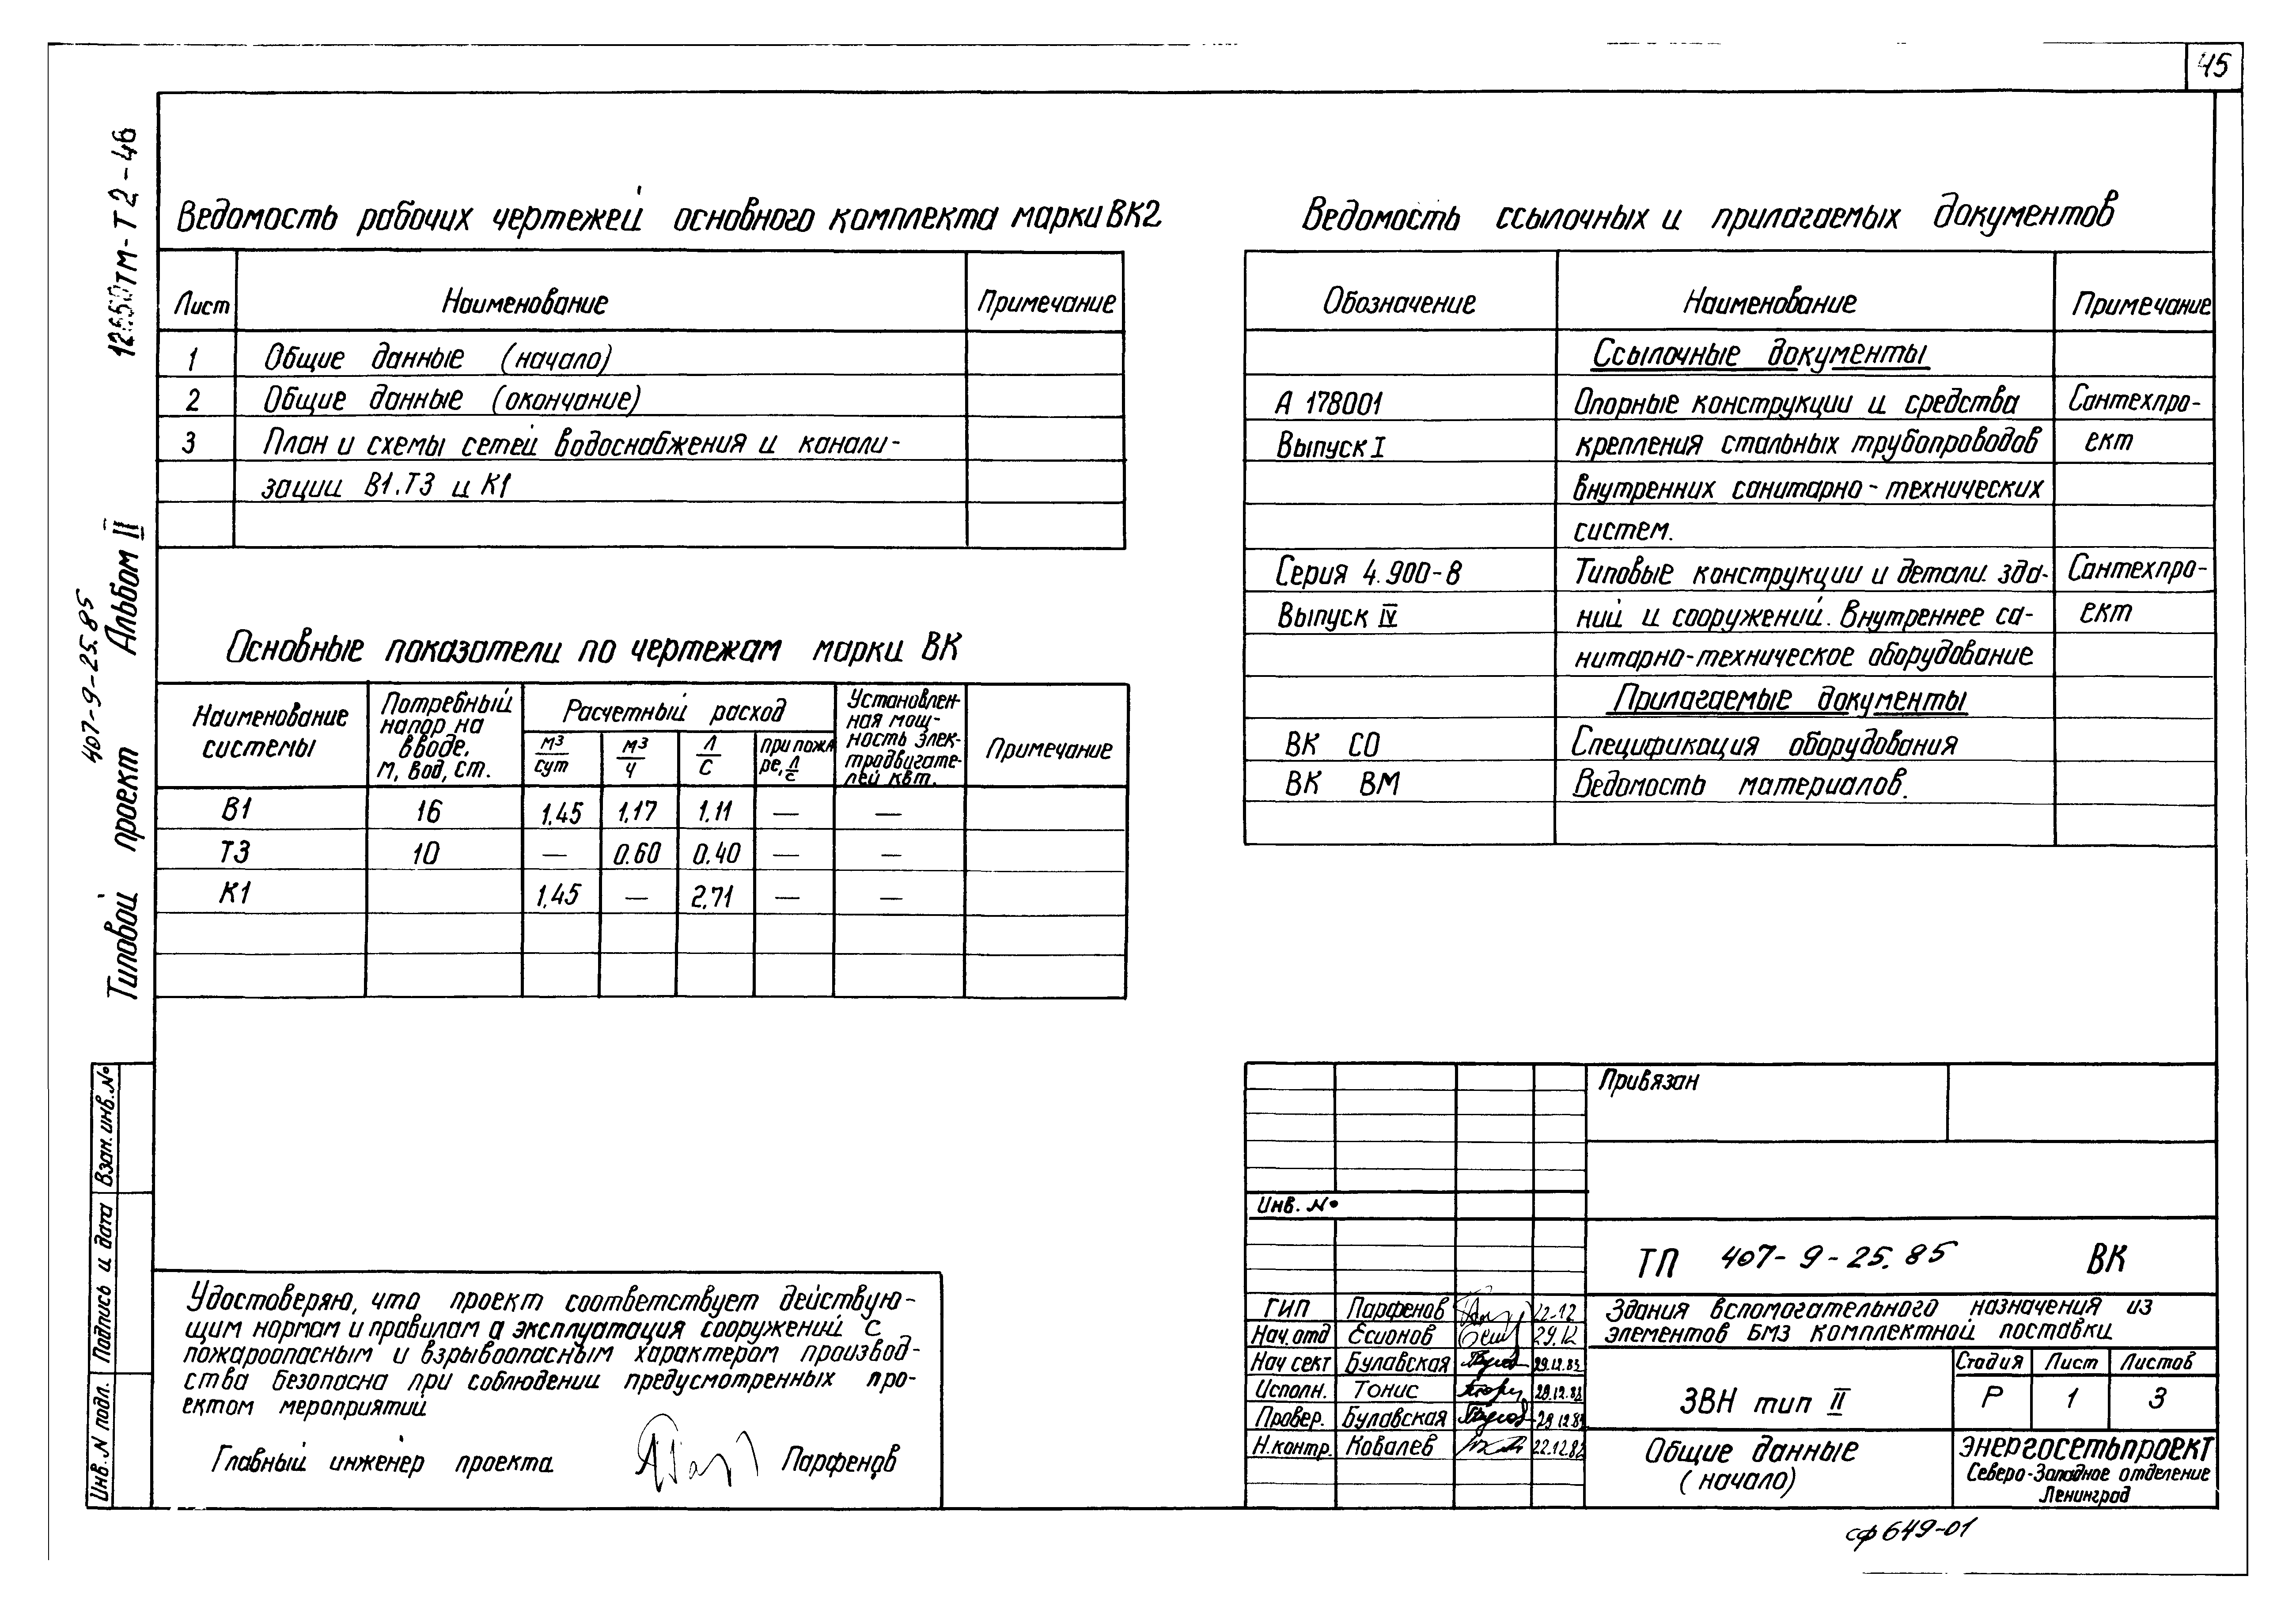 45
12650ТМ-Т2-46
Типовой проект 407-9-25.85 Альбом II
Ведомость рабочих чертежей основного комплекта марки ВК2
Лист Наименование Примечание
1 Общие данные (начало)
2 Общие данные (окончание)
3 План и схемы сетей водоснабжения и канали-
зации В1.Т3 и К1
Основные показатели по чертежам марки ВК
Наименование системы
Потребный напор на вводе, м, вод, ст.
Расчетный расход
м3/сут
м3/ч
л/с
при пожаре, л/с
Установлен-
ная мощ-
ность элек-
тродвигате-
лей квт.
Примечание
В1 16 1,45 1,17 1,11 — —
Т3 10 — 0.60 0.40 — —
К1 1,45 — 2,71 — —
Ведомость ссылочных и прилагаемых документов
Обозначение Наименование Примечание
Ссылочные документы
А 178001 Опорные конструкции и средства Сантехпро-
Выпуск I крепления стальных трубопроводов ект
внутренних санитарно-технических
систем.
Серия 4.900-8 Типовые конструкции и детали зда- Сантехпро-
Выпуск IV ний и сооружений. Внутреннее са- ект
нитарно-техническое оборудование
Прилагаемые документы
ВК СО Спецификация оборудования
ВК ВМ Ведомость материалов.
Взам. инв. №
Подпись и дата
Инв. № подл.
Удостоверяю, что проект соответствует действую-
щим нормам и правилам а эксплуатация сооружений с
пожароопасным и взрывоопасным характером производ-
ства безопасна при соблюдении предусмотренных про-
ектом мероприятий
Главный инженер проекта Парфенов
Привязан
Инв. №
ТП 407-9-25.85 ВК
ГИП Парфенов 22.12
Нач.отд Есионов 29.12
Нач сект Булавская 29.12.83
Исполн. Тонис 29.12.83
Провер. Булавская 29.12.83
Н.контр. Ковалев 22.12.82
Здания вспомогательного назначения из
элементов БМЗ комплектной поставки
ЗВН тип II
Стадия Лист Листов
Р 1 3
Общие данные
(начало)
Энергосетьпроект
Северо-Западное отделение
Ленинград
сф 649-01